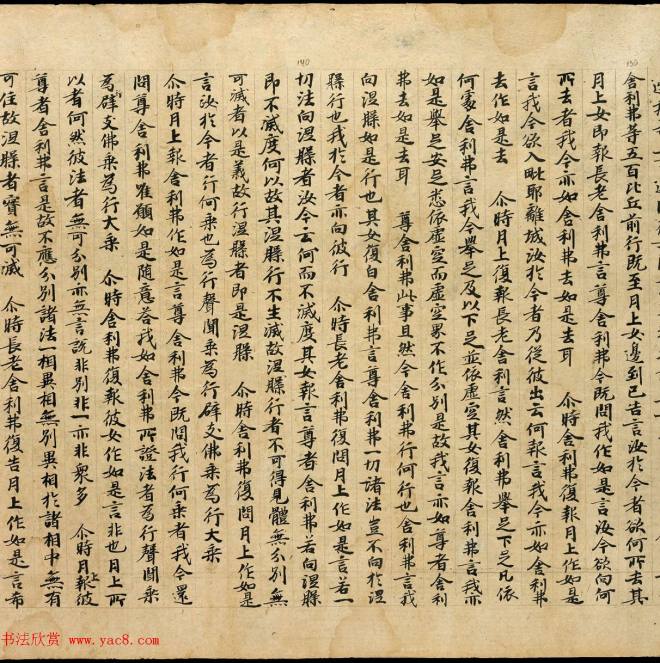 舍利弗等五百比丘前行既至月上女邊到已告言汝於今者欲何所去其
月上女即報長老舍利弗言尊者舍利弗今既問我作如是言汝今欲向何
所去者我今亦如舍利弗去如是去耳 尒時舍利弗復報月上作如是
言我今欲入毗耶離城汝於今者乃從彼出云何報言我今亦如舍利弗
去作如是去 尒時月上復報長老舍利言然舍利弗舉足下足凡依
何處舍利弗言我今舉足及以下足並依虛空其女復報舍利弗言我亦
如是舉足安足悉依虛空而虛空界不作分別是故我言亦如尊者舍利
弗去如是去耳 尊舍利弗此事且然今舍利弗行何行也舍利弗言我
向涅槃如是行也其女復白舍利弗言尊舍利弗一切諸法豈不向於涅
槃行也我於今者亦向彼行 尒時長老舍利弗復問月上作如是言若一
切法向涅槃者汝今云何而不滅度其女報言尊者舍利弗若向涅槃
即不滅度何以故其涅槃行不生滅故涅槃行者不可得見體無分別無
可滅者以是義故行涅槃者即是涅槃 尒時舍利弗復問月上作如是
言汝於今者行何乘也為行聲聞乘為行辟支佛乘為行大乘
尒時月上報舍利弗作如是言尊舍利弗今既問我行何乘者我今還
問尊舍利弗唯願如是隨意荅我如舍利弗所證法者為行聲聞乘
為辟支佛乘為行大乘 尒時舍利弗復報彼女作如是言非也月上所
以者何然彼法者無可分別亦無言說非別非一亦非衆多 尒時月上報彼
尊者舍利弗言是故不應分別諸法一相異相無別異相於諸相中無有
可住故涅槃者實無可滅 尒時長老舍利弗復告月上作如是言希
130
140
书法欣赏 www.yac8.com